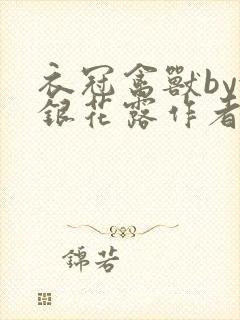 衣冠禽獸by
銀花露作者
錦若